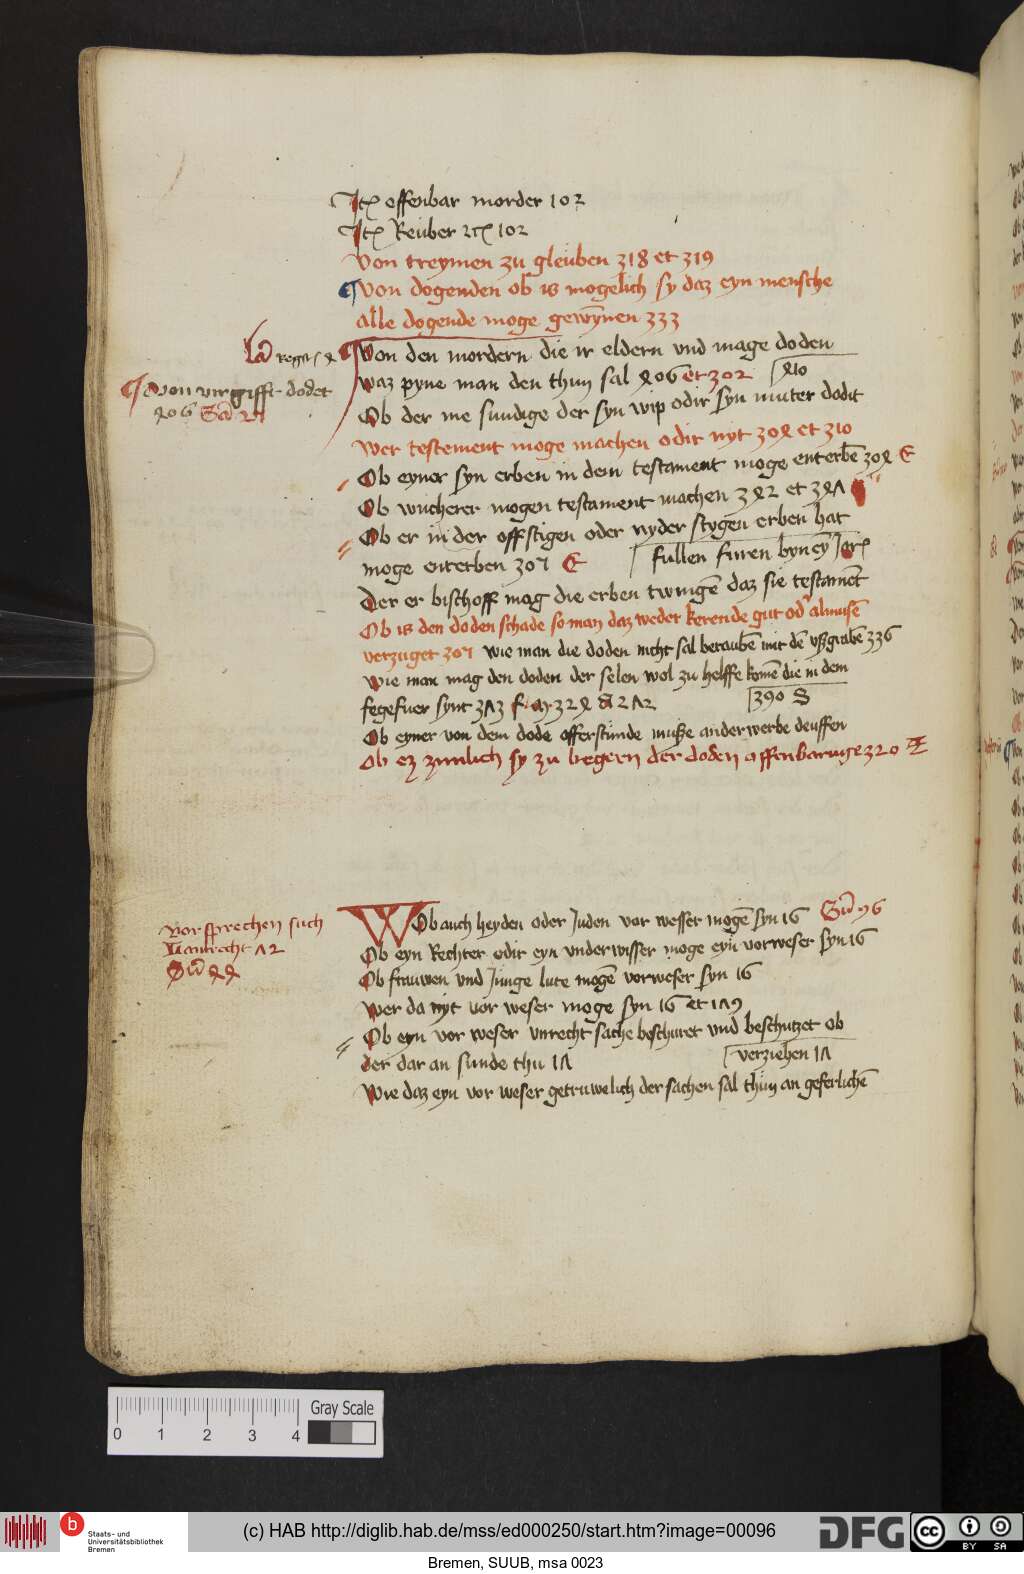 Itꝫ offenbar morder 102
Itꝫ Reuber ꝛcꝫ 102
Von treymen zu gleuben 318 et 319
Von dogenden ob is mogelich sy daz eyn mensche
alle dogende moge gewȳnen 333
Von den mordern die ir eldern vnd mage doden
waz pyne man den thun sal 406 et 302
410
Von virgifft dodet
406
Ob der me sundige der syn wip odir syn muter dodit
wer testement moge machen odir nyt 304 et 310
Ob eyner syn erben in dem testament moge enterbē 304 E
Ob wucherer mogen testament machen 342 et 347
Ob er in der offstigen oder nyder stygen erben hat
moge enterben 307 E
fullen furen
Der er bischoff mag die erben twingē daz sie testamēt
Ob is den doden schade so man daz wedet kerende gut od' almusē
verzuget 307 wie man die doden nicht sal beraubē mit dē vßgrabē 336
Wie man mag den doden der selen wol zu helffe komē die in dem
390 S
fegefuer synt 373
Ob eyner von dem dode offerstunde muße anderwerbe deuffen
Ob ez zimlich sy zu begern der doden offenbaruge 320
WOb auch heyden oder Juden vor wesser mogē syn 16
Vorsprechen such
Lantrecht 72
Ob eyn Rechter odir eyn vnderwisser moge eyn vorweser syn 16
Ob frauwen vnd Junge lute mogē vorweser syn 16
Wer da nyt vor weser moge syn 16 et 179
Ob eyn vor weser vnrecht sache beschuret vnd beschutzet ob
der dar an sunde thu 17
verziehen 17
Wie daz eyn vor weser getruwelich der sachen sal thun an geferlichē
0 1 2 3 4
Gray Scale
b
Staats- und
Universitätsbibliothek
Bremen
(c) HAB http://diglib.hab.de/mss/ed000250/start.htm?image=00096
DFG
cc
BY SA
Bremen, SUUB, msa 0023